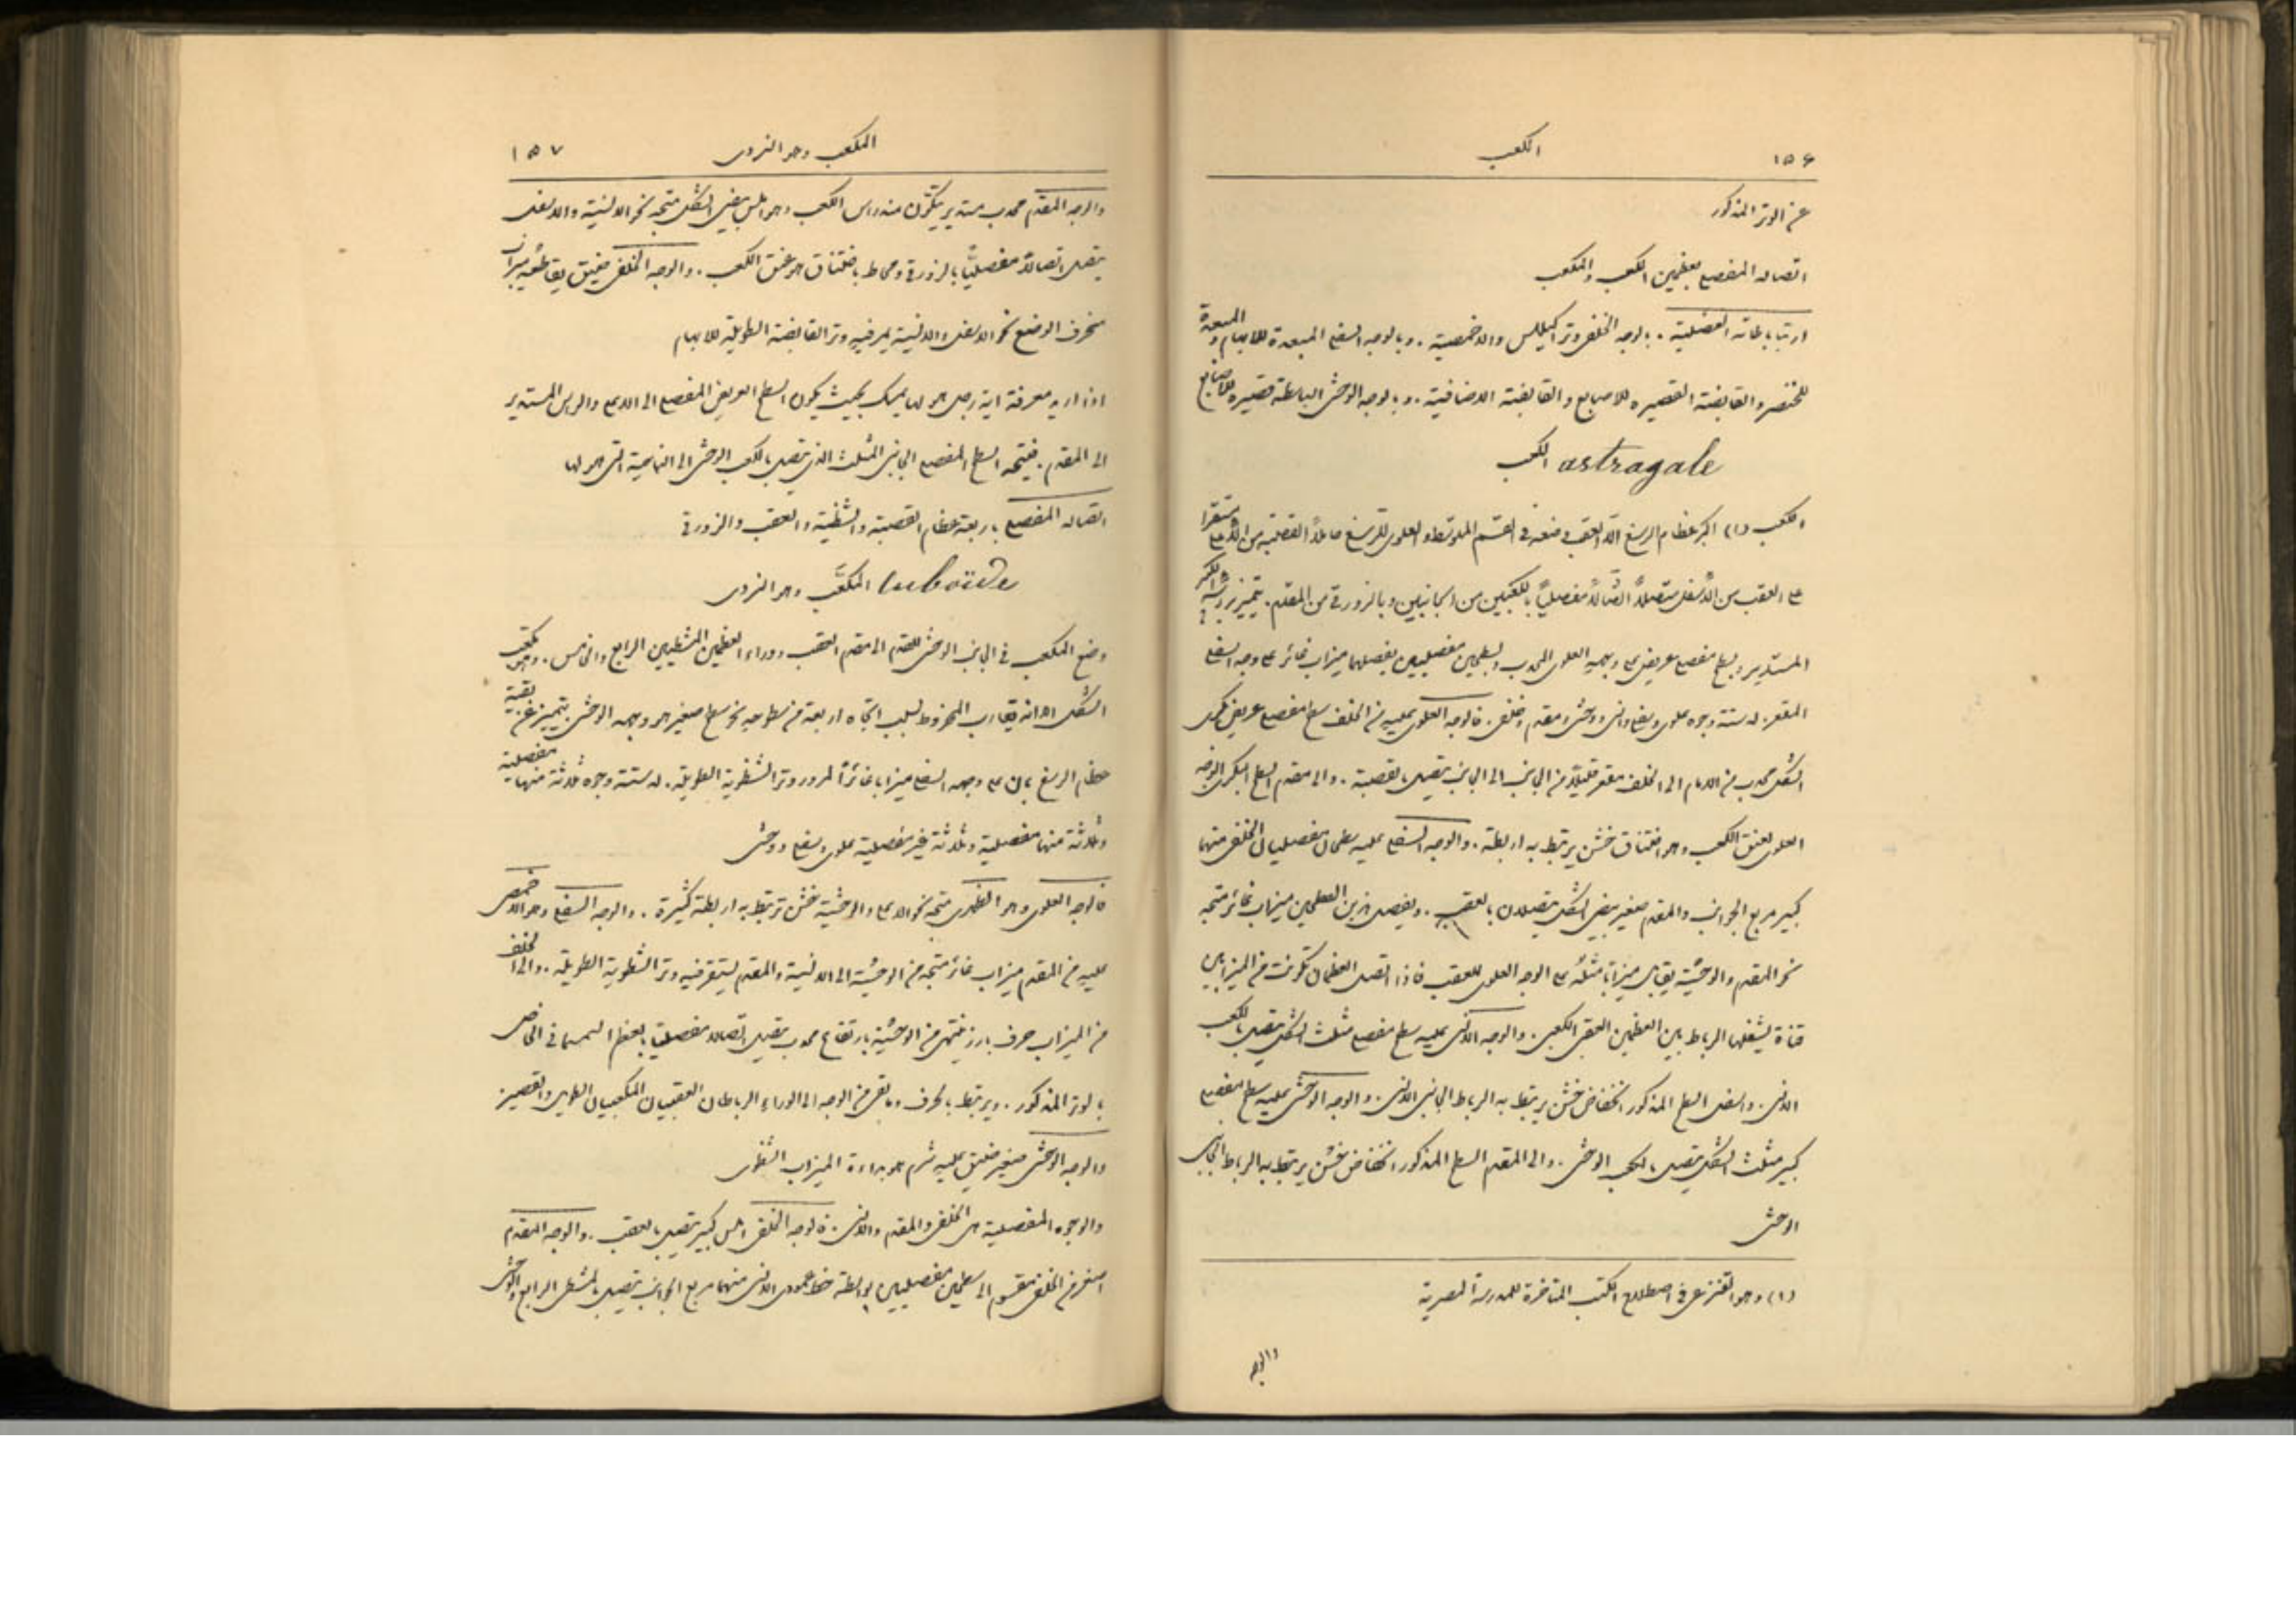 ١٥٦ الكعب
عن الوتر المذكور
اتصاله المفصلي بعظمين الكعب والمكعب
ارتباطاته العضلية . بالوجه الخلفي وتر اكيللس والاخمصية . وبالوجه السفلي المبعدة للابهام والمبعدة
للخنصر والقابضة القصيرة للاصابع والقابضة الاضافية . وبالوجه الوحشي الباسطة قصيرة للاصابع
astragale الكعب
الكعب (١) اكبر عظام الرسغ الا العقب وضعه في القسم المتوسط والعلوي للرسغ حاملاً القصبة من الاعلى مستقرا
على العقب من الاسفل متصلاً اتصالاً مفصلياً بالكعبين من الجانبين وبالزورقي من المقدم . يتميز برأسه الكبير
المستدير وبسطح مفصلي عريض على وجهه العلوي المحدب وبسطحين مفصليين يفصلهما ميزاب غائر على وجهه السفلي
المقعر . له ستة وجوه علوي وسفلي وانسي ووحشي ومقدم وخلفي . فالوجه العلوي عليه من الخلف سطح مفصلي عريض بكري
الشكل محدب من الامام الى الخلف مقعر قليلاً من الجانب الى الجانب يتصل بالقصبة . والى مقدم السطح البكري الوجه
العلوي لعنق الكعب وهو اختناق خشن يرتبط به اربطة . والوجه السفلي عليه سطحان مفصليان الخلفي منهما
كبير مربع الجوانب والمقدم صغير بيضي الشكل يتصلان بالعقب . ويفصل هذين السطحين ميزاب غائر متجه
نحو المقدم والوحشية يقابل ميزاباً مثله على الوجه العلوي للعقب فاذا اتصل العظمان تكونت من الميزابين
قناة يشغلها الرباط بين العظمين العقبي الكعبي . والوجه الانسي عليه سطح مفصلي مثلث الشكل يتصل بالكعب
الانسي . واسفل السطح المذكور انخفاض خشن يرتبط به الرباط الجانبي الانسي . والوجه الوحشي عليه سطح مفصلي
كبير مثلث الشكل يتصل بالكعب الوحشي . والى المقدم السطح المذكور انخفاض خشن يرتبط به الرباط الجانبي
الوحشي
(١) وهو القنزعي في اصطلاح الكتب المتاخرة للمدرسة المصرية
والوجه
المكعب وهو النردي ١٥٧
والوجه المقدم محدب مستدير يتكون منه راس الكعب وهو املس بيضي الشكل متجه نحو الانسية والاسفل
يتصل اتصالاً مفصلياً بالزورقي ومحاط باختناق هو عنق الكعب . والوجه الخلفي ضيق يقاطعه ميزاب
منحرف الوضع نحو الاسفل والانسية يمر فيه وتر القابضة الطويلة للابهام
اذا اريد معرفة اية رجل هو لها يمسك بحيث يكون السطح العريض المفصلي الى الاعلى والراس المستدير
الى المقدم . فيتجه السطح المفصلي الجانبي المثلث الذي يتصل بالكعب الوحشي الى الناحية التي هو لها
اتصاله المفصلي باربعة عظام القصبة والشظية والعقب والزورقي
cuboïde المكعّب وهو النردي
وضع المكعب في الجانب الوحشي للقدم الى مقدم العقب ووراء العظمين المشطيين الرابع والخامس . وهو مكعب
الشكل الا انه يقارب المخروط لسبب اتجاه اربعة من سطوحه نحو سطح صغير هو وجهه الوحشي يتميز عن بقية
عظام الرسغ بان على وجهه السفلي ميزابا غائراً لمرور وتر الشظوية الطويلة . له ستة وجوه ثلاثة منها مفصلية
وثلاثة منها مفصلية وثلاثة غير مفصلية علوي وسفلي ووحشي
فالوجه العلوي وهو الظهري متجه نحو الاعلى والوحشية خشن ترتبط به اربطة كثيرة . والوجه السفلي وهو الاخمصي
عليه من المقدم ميزاب غائر متجه من الوحشية الى الانسية والمقدم يستقر فيه وتر الشظوية الطويلة . والى الخلف
من الميزاب حرف بارز ينتهي من الوحشية بارتفاع محدب يتصل اتصالا مفصليا بالعظم السمسماني الخاص
بالوتر المذكور . ويرتبط بالحرف وما بقي من الوجه الى الوراء الرباطان العقبيان المكعبيان الطويل والقصير
والوجه الوحشي صغير ضيق عليه شرم هو بداءة الميزاب الشظوي
والوجوه المفصلية هي الخلفي والمقدم والانسي . فالوجه الخلفي املس كبير يتصل بالعقب . والوجه المقدم
اصغر من الخلفي مقسوم الى سطحين مفصليين بواسطة خط عمودي الانسي منهما مربع الجوانب يتصل بالمشطي الرابع والوحشي